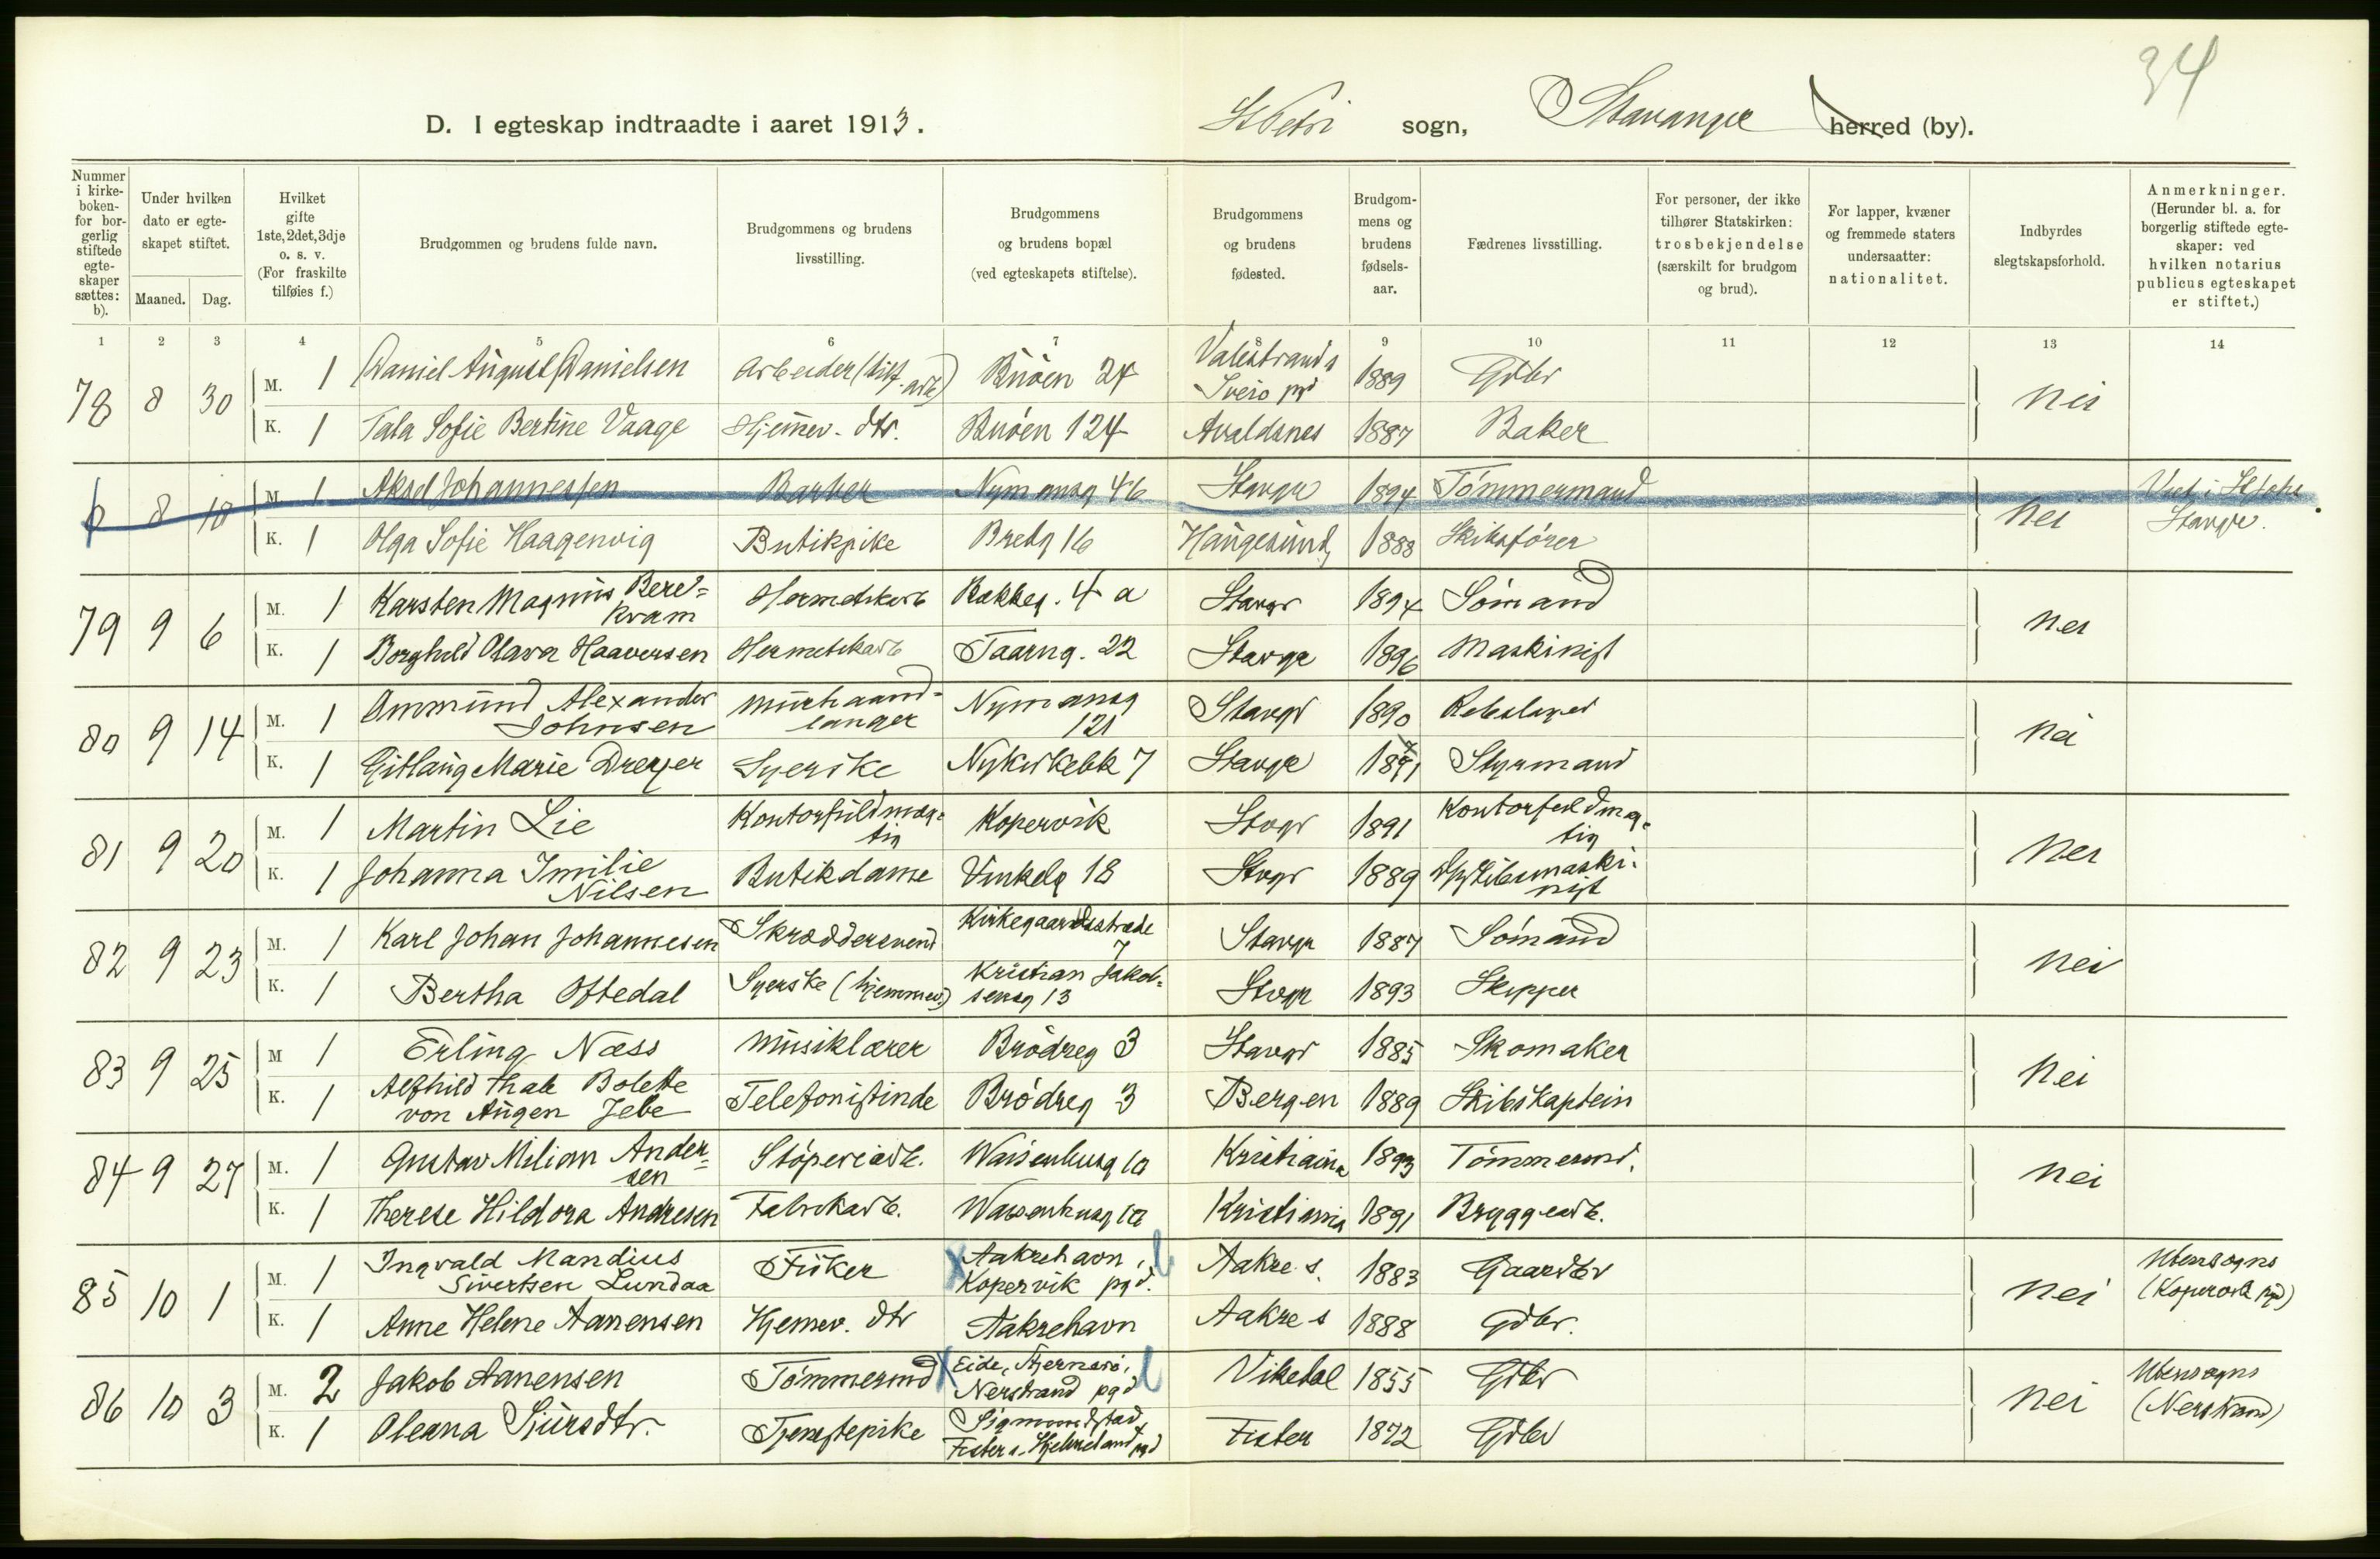 34
D. I egteskap indtraadte i aaret 1913. St Petri sogn, Stavanger herred (by).
Nummer i kirke-boken- for bor-gerlig stiftede egte-skaper sættes: b).
Under hvilken dato er egte-skapet stiftet.
Maaned. Dag.
Hvilket gifte 1ste, 2det, 3dje o. s. v. (For fraskilte tilføies f.)
Brudgommen og brudens fulde navn.
Brudgommens og brudens livsstilling.
Brudgommens og brudens bopæl (ved egteskapets stiftelse).
Brudgommens og brudens fødested.
Brudgom-mens og brudens fødsels-aar.
Fædrenes livsstilling.
For personer, der ikke tilhører Statskirken: trosbekjendelse (særskilt for brudgom og brud).
For lapper, kvæner og fremmede staters undersaatter: nationalitet.
Indbyrdes slegtskapsforhold.
Anmerkninger. (Herunder bl. a. for borgerlig stiftede egte-skaper: ved hvilken notarius publicus egteskapet er stiftet.)
1 2 3 4 5 6 7 9 10 11 12 13 14
78 8 30 M. 1 Daniel August Danielsen Arbeider Buöen 24 Valestrands Sveio pgd 1889 Gdbr nei
K. 1 Tala Sofie Bertine Vaage Hjemmev. dtr. Buöen 124 Avaldsnes 1887 Baker
b 8 10 M. 1 Aksel Johannessen Barber Nymansg 46 Stavgr 1894 Tömmermand nei
K. 1 Olga Sofie Haagenvig Butikpike Bredg 16 Haugesund 1888 Skibsförer Stavgr.
79 9 6 M. 1 Karsten Magnus Berekvam Hermetikarb Bakkeg. 4 a Stavgr 1894 Sömand nei
K. 1 Borghild Olava Haaversen Hermetikarb Taarng. 22 Stavgr 1896 Maskinist
80 9 14 M. 1 Ommund Alexander Johnsen Murhaand-langer Nymansg 121 Stavgr 1890 Rebslager nei
K. 1 Gitlaug Marie Dreyer Syerske Nykirkebk 7 Stavgr 1891 Styrmand
81 9 20 M. 1 Martin Lie Kontorfuldmæg-tig Kopervik Stvgr 1891 Kontorfuldmæg-tig nei
K. 1 Johanna Imilie Nilsen Butikdame Vinkelg 18 Stvgr 1889
82 9 23 M. 1 Karl Johan Johannesen Skræddersvend Kirkegaardsstræde 7 Stavgr 1887 Sömand nei
K. 1 Bertha Oftedal Syerske (hjemmev.) Kristian Jakob-sensg 13 Stvgr 1893 Skipper
83 9 25 M 1 Erling Næss Musiklærer Brödreg 3 Stavgr 1885 Skomaker nei
K. 1 Alfhild Thale Bolette von Augen Jebe Telefonistinde Brödreg 3 Bergen 1889 Skibskaptein
84 9 27 M. 1 Gustav Milian Ander-sen Stöperiarb. Waisenhusg 10 Kristiania 1893 Tömmermd. nei
K. 1 Therese Hildora Andresen Fabrikarb. Waisenhusg 10 Kristiania 1891 Bryggearb.
85 10 1 M. 1 Ingvald Mandius Sivertsen Lundaa Fisker Aakrehavn, Kopervik pgd. Aakre s. 1883 Gaardbr nei Utensogns (Kopervik pgd)
K. 1 Anne Helene Aanensen Hjemmev. dtr Aakrehavn Aakre s 1888 Gdbr.
86 10 3 M. 2 Jakob Aanensen Tömmermd Eide, Nerstrand pgd Vikedal 1855 Gdbr nei Utensogns (Nerstrand)
K. 1 Oleana Sjursdtr. Tjenestepike Sigmundstad, Fister s. Hjelmeland pgd Fister 1872 Gdbr